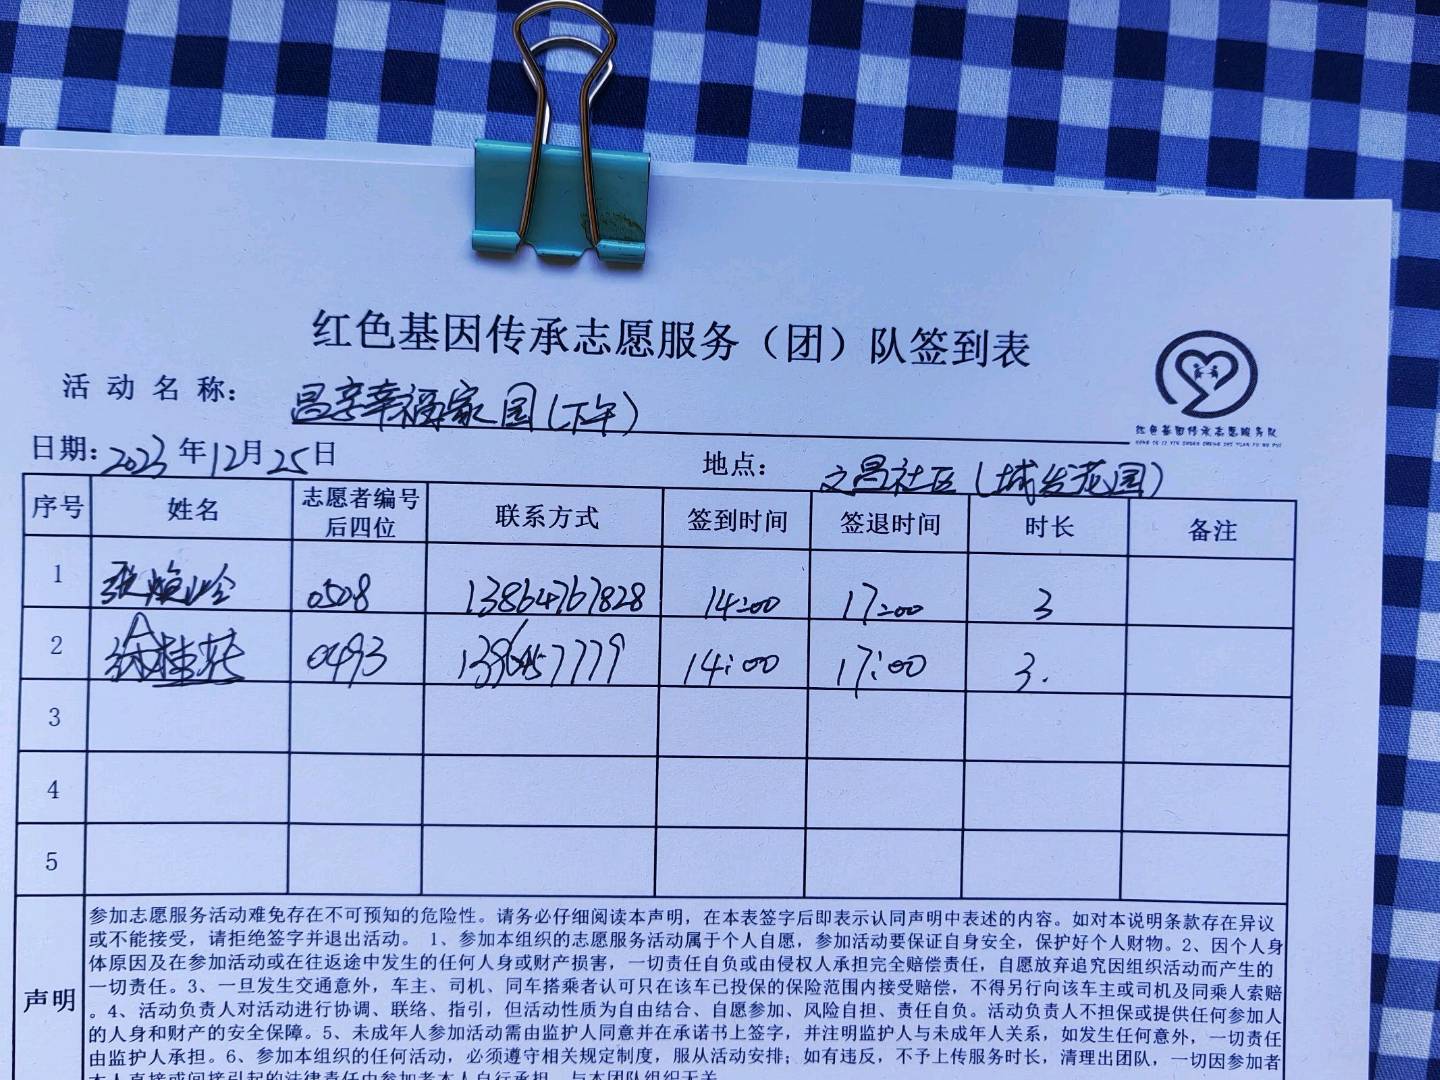 红色基因传承志愿服务（团）队签到表
红色基因传承志愿服务队
活动名称： 昌享幸福家园（下午）
日期：2023年12月25日 地点： 文昌社区（城发花园）
序号 姓名 志愿者编号后四位 联系方式 签到时间 签退时间 时长 备注
1 张焕岭 0508 13864767828 14:00 17:00 3
2 徐桂花 0493 14:00 17:00 3.
3
4
5
声明
参加志愿服务活动难免存在不可预知的危险性。请务必仔细阅读本声明，在本表签字后即表示认同声明中表述的内容。如对本说明条款存在异议
或不能接受，请拒绝签字并退出活动。 1、参加本组织的志愿服务活动属于个人自愿，参加活动要保证自身安全，保护好个人财物。2、因个人身
体原因及在参加活动或在往返途中发生的任何人身或财产损害，一切责任自负或由侵权人承担完全赔偿责任，自愿放弃追究因组织活动而产生的
一切责任。3、一旦发生交通意外，车主、司机、同车搭乘者认可只在该车已投保的保险范围内接受赔偿，不得另行向该车主或司机及同乘人索赔
。4、活动负责人对活动进行协调、联络、指引，但活动性质为自由结合、自愿参加、风险自担、责任自负。活动负责人不担保或提供任何参加人
的人身和财产的安全保障。5、未成年人参加活动需由监护人同意并在承诺书上签字，并注明监护人与未成年人关系，如发生任何意外，一切责任
由监护人承担。6、参加本组织的任何活动，必须遵守相关规定制度，服从活动安排；如有违反，不予上传服务时长，清理出团队，一切因参加者
本人直接或间接引起的法律责任由参加者本人自行承担，与本团队组织无关